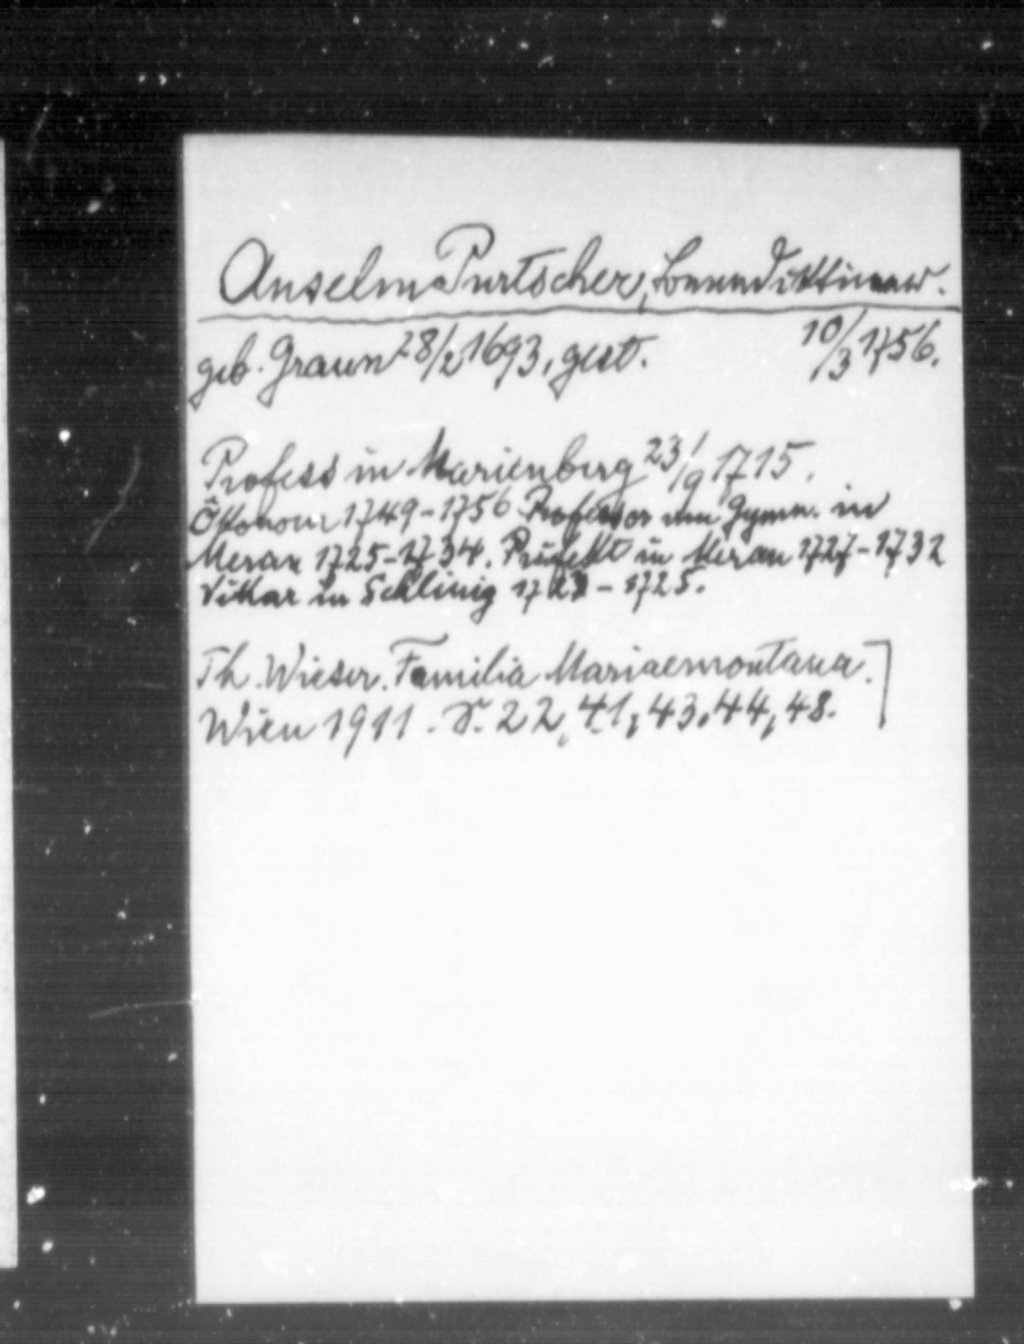 Anselm Purtscher, Benediktiner.
geb. Graun 28/2 1693, gest. 10/3 1756.
Profess in Marienberg 23/9 1715.
Ökonom 1749-1756 Professor am Gymn. in
Meran 1725-1734. Präfekt in Meran 1727-1732
Vikar in Schlinig - 1725.
Th. Wieser. Familia Mariaemontana.
Wien 1911. S. 22, 41, 43, 44, 48.